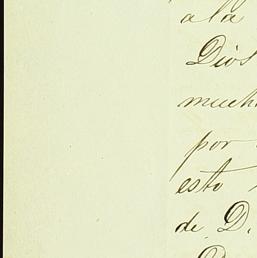 a la
Dios
much
por
esto
de D.